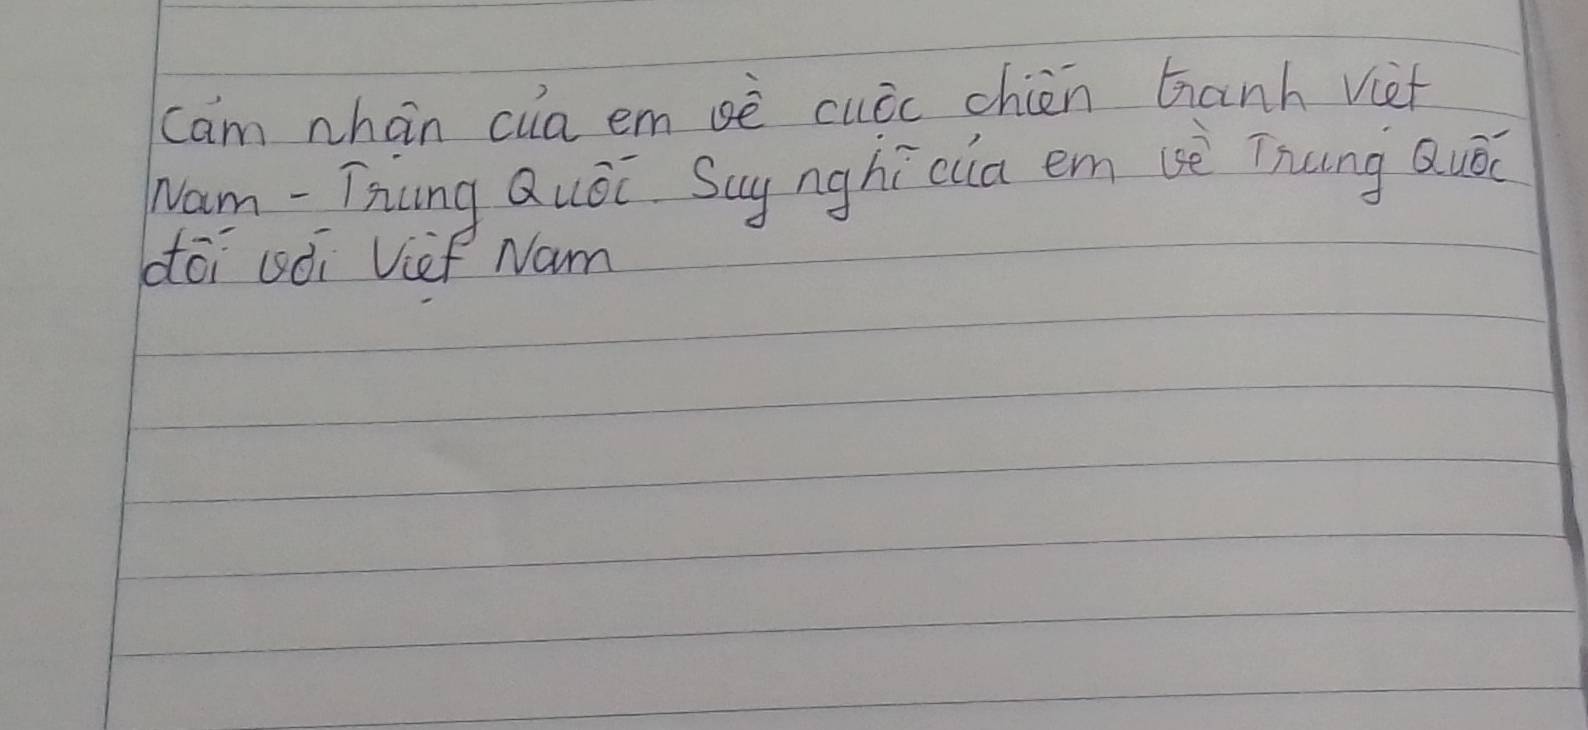 Cảm nhận của em về cuộc chiến tranh Việt
Nam - Trung Quốc. Suy nghĩ của em về Trung Quốc
đối với Việt Nam